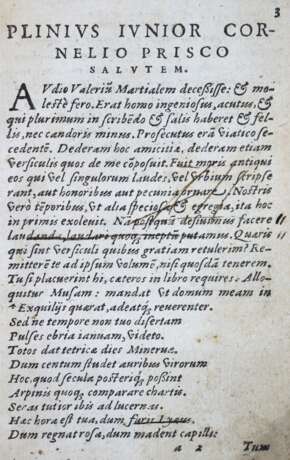 3
PLINIVS IVNIOR COR-
NELIO PRISCO
SALVTEM.
AVdio Valeriũ Martialem decessisse: & mo-
lestè fero. Erat homo ingeniosus, acutus, &
qui plurimum in scribẽdo & salis haberet & fel-
lis, nec candoris minus. Prosecutus erã viatico se-
cedentẽ. Dederam hoc amicitiæ, dederam etiam
versiculis quos de me cõposuit. Fuit moris antiqui
eos qui vel singulorum laudes, vel vrbium scripse
rant, aut honoribus aut pecunia ornare. Nostris
verò tẽporibus, vt alia speciosa & egregia, ita hoc
in primis exoleuit. Nã postquã desiuimus facere
laudanda, laudari quoq; ineptũ putamus. Quæris
qui sint versiculi quibus gratiam retulerim? Re-
mitterẽ te ad ipsum volumẽ, nisi quosdã tenerem.
Tu si placuerint hi, cæteros in libro requires. Allo-
quitur Musam: mandat vt domum meam in
Exquilijs quærat, adeatq; reuerenter.
Sed ne tempore non tuo disertam
Pulses ebria ianuam, videto.
Totos dat tetricæ dies Mineruæ.
Dum centum studet auribus virorum
Hoc, quod secula posteriq; possint
Arpinis quoq; comparare chartis.
Seras tutior ibis ad lucernas.
Hæc hora est tua, dum furit Lyæus,
Dum regnat rosa, dum madent capilli:
a 2 Tum